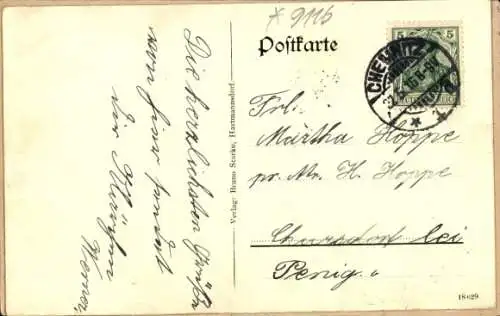 * 9116
Postkarte
5 5
CHEMNITZ
Frl.
Martha Hoppe
pr. Adr. H. Hoppe
Chursdorf bei
Penig.
18629
Verlag: Bruno Storke, Hartmannsdorf.
Die herzlichsten Grüße
von hier sendet
Dir
Werner.